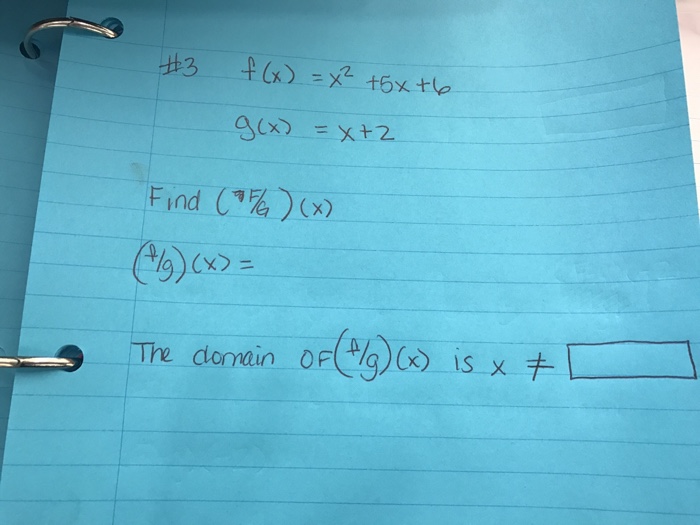 #3 f(x) = x² +5x+6
g(x) = x+2
Find (F/G)(x)
(f/g)(x) =
The domain OF (f/g)(x) is x ≠